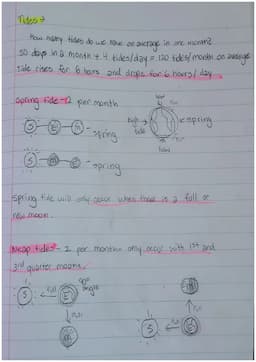 Tides
How many tides do we have on average in one month?
30 days in a month + 4 tides/day = 120 tides/month on average
tide rises for 6 hours and drops for 6 hours/day
Spring tide - 2 per month
high tide
spring
S E m - spring
S m E - spring
Spring tide will only occur when there is a full or
new moon.
Neap tides - 2 per month only occur with 1st and
3rd quarter moons.
S Pull E 90° angle
Pull
m
m
Pull
S Pull E